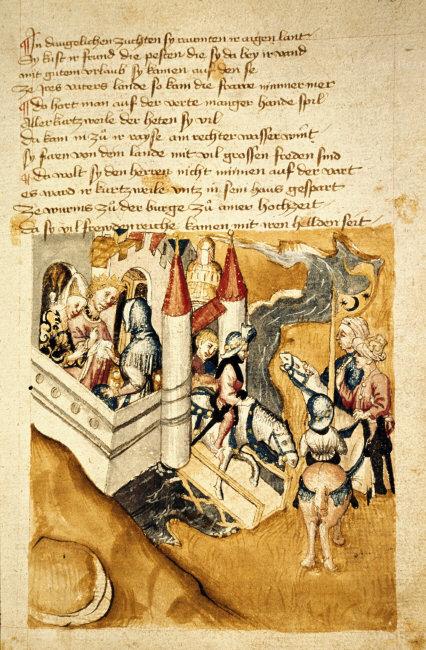 In daugelichen zuchten sy raumten ir aigen lant
Sy kust ir frund die pesten die sy da bey ir vand
mit gutem urlaub sy kamen auf den se
Ze ires vaters lande so kam die frawe nimmer mer
Do hort man auf der verte manger hande spil
Aller kurtzweile der heten sy vil
Da kam in zů ir rayse ain rechter wasser wint
sy faren von dem lande mit vil grossen freden sind
da wolt sy den herren nicht minnen auf der vart
es ward ir kurtzweile untz in sein haus gespart
Ze wurms zů der burge zů ainer hochzeit
da sy vil frewdenreiche kamen mit iren hellden seit